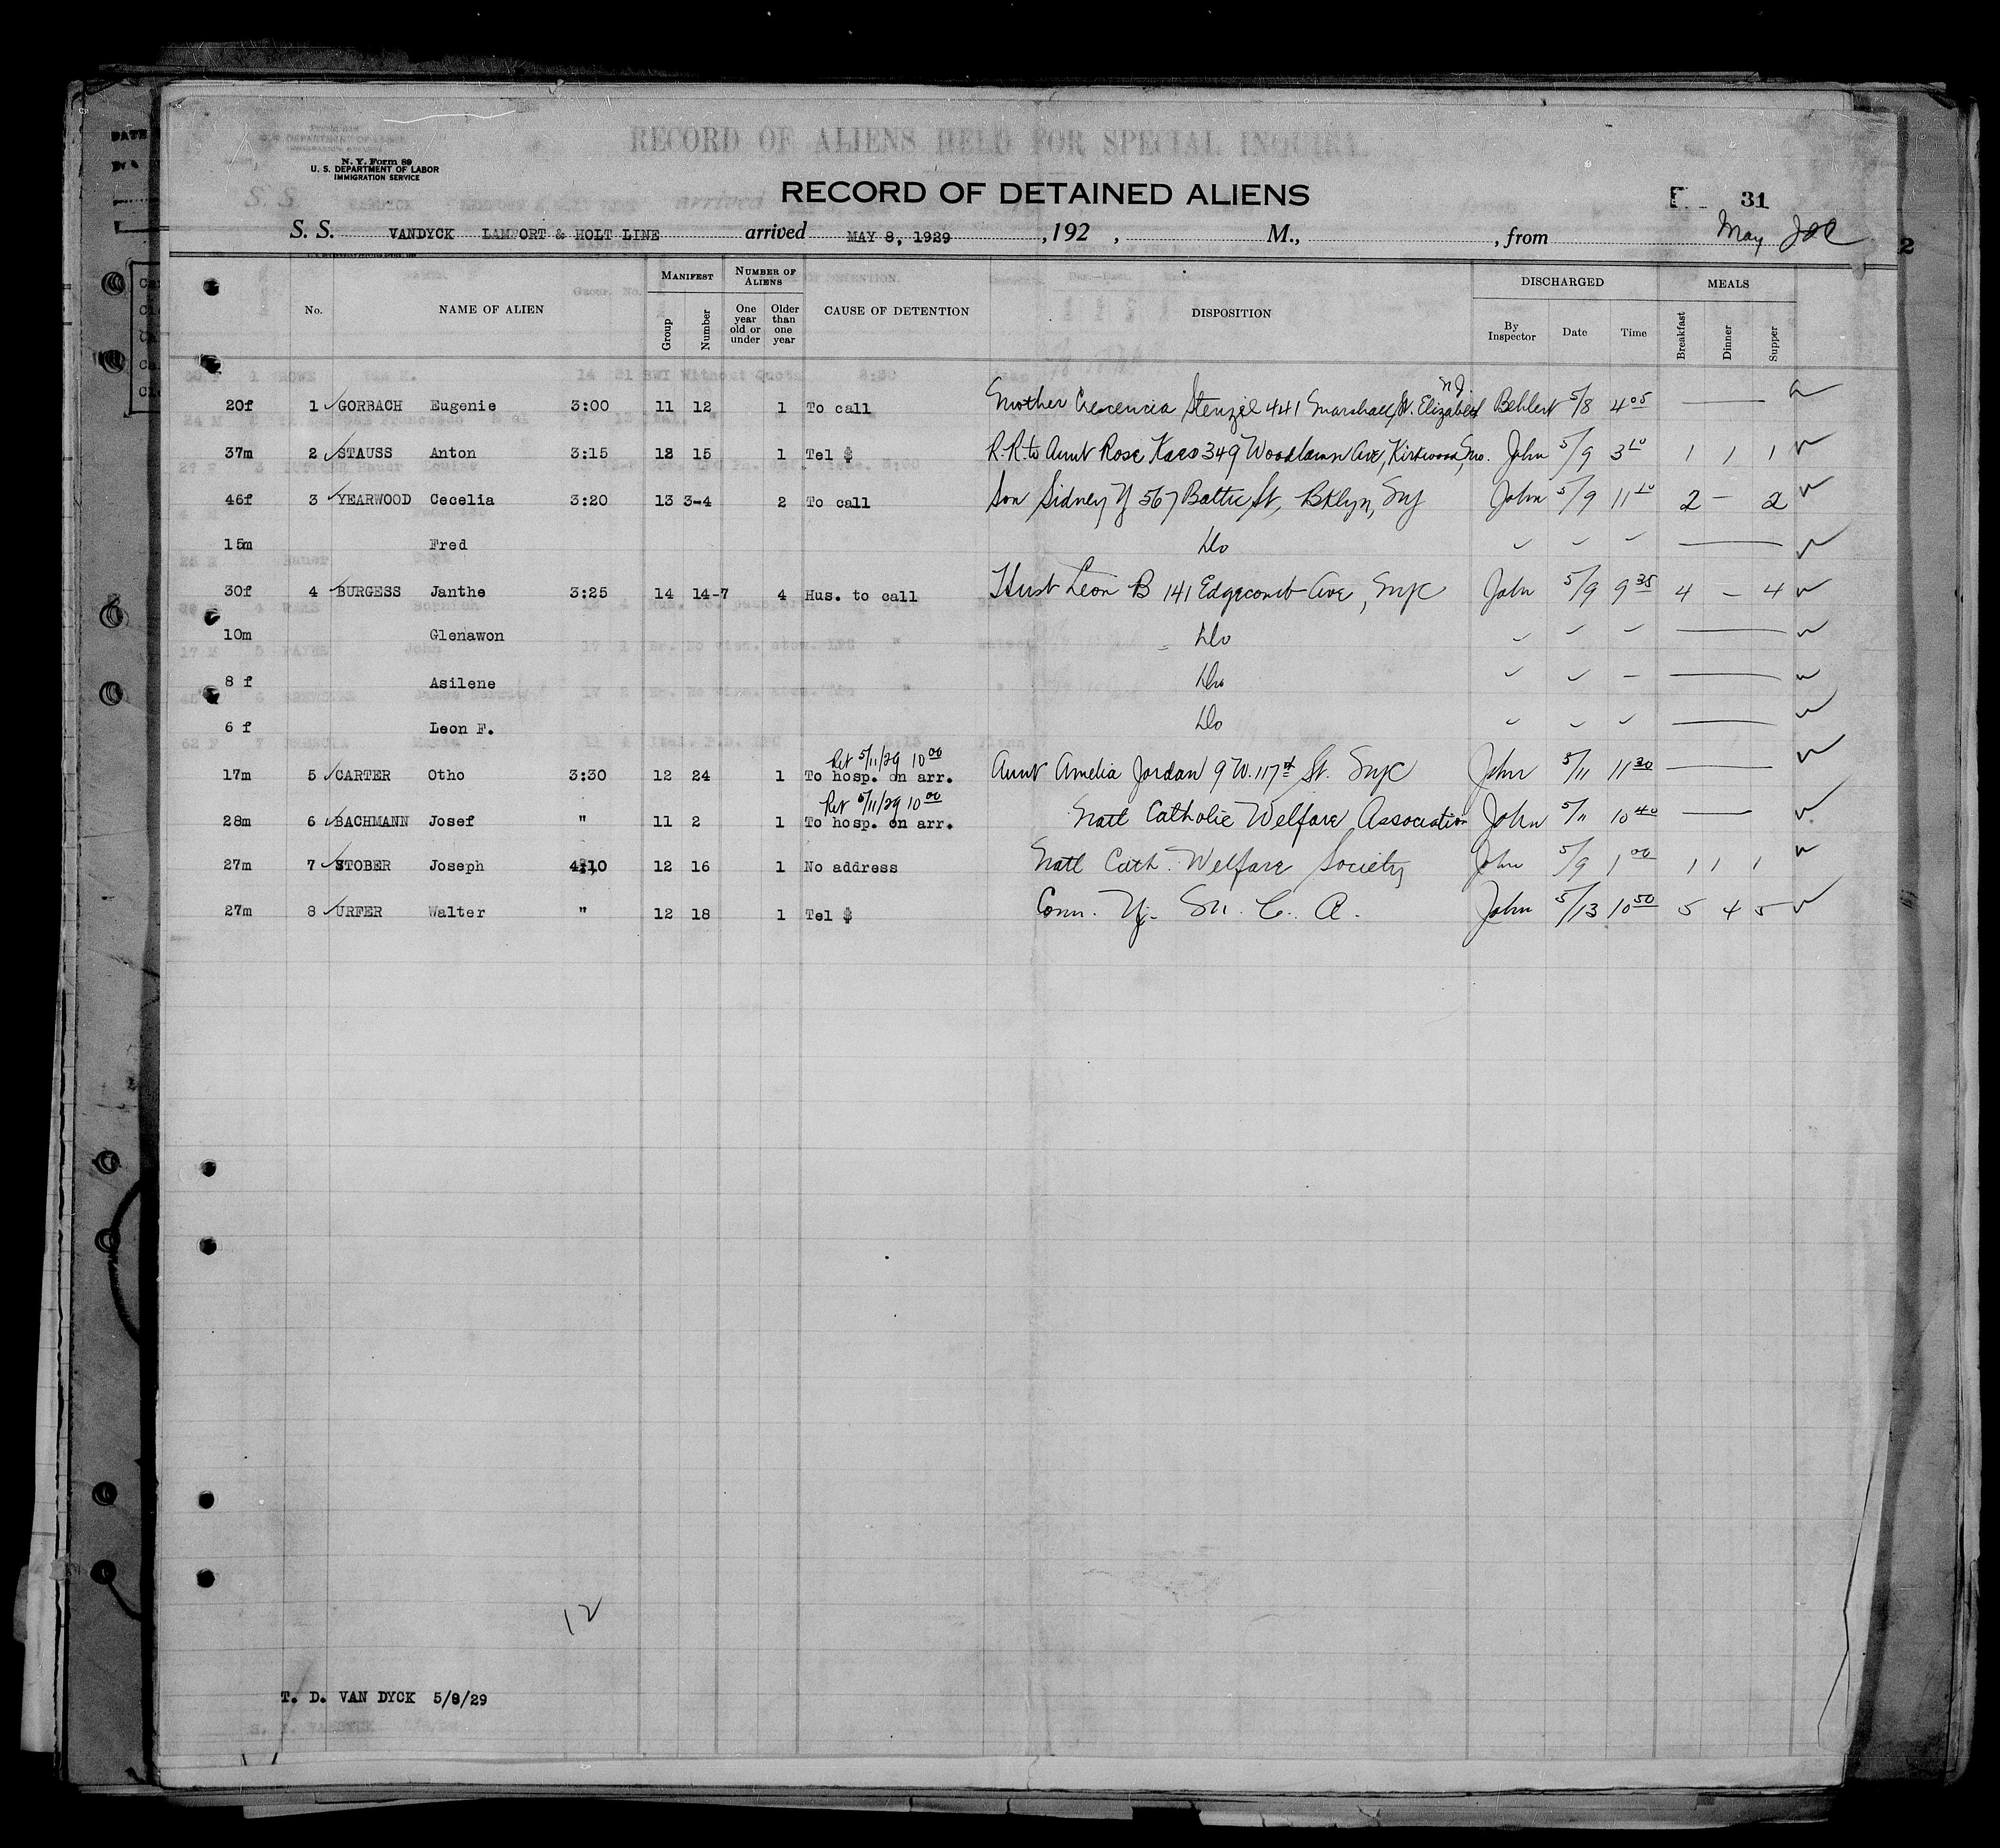 RECORD OF ALIENS HELD FOR SPECIAL INQUIRY.
N. Y. Form 89
U. S. DEPARTMENT OF LABOR
IMMIGRATION SERVICE
RECORD OF DETAINED ALIENS
31
S. S. VANDYCK LAMPORT & HOLT LINE arrived MAY 8, 1929 , 192 , M., , from May
2
No. NAME OF ALIEN MANIFEST Group Number NUMBER OF ALIENS One year old or under Older than one year CAUSE OF DETENTION DISPOSITION DISCHARGED By Inspector Date Time MEALS Breakfast Dinner Supper
20f 1 GORBACH Eugenie 3:00 11 12 1 To call Mother Crescencia Stenzel 441 Marshall St. Elizabeth N.J. Behlert 5/8 4 05 —
37m 2 STAUSS Anton 3:15 12 15 1 Tel $ R.R. to Aunt Rose Kaes 349 Woodlawn Ave, Kirkwood, Mo. John 5/9 3 10 1 1 1
46f 3 YEARWOOD Cecelia 3:20 13 3-4 2 To call Son Sidney Y 567 Baltic St, Bklyn, NY John 5/9 11 10 2 — 2
15m Fred Do ✓ ✓ ✓ —
30f 4 BURGESS Janthe 3:25 14 14-7 4 Hus. to call Husb Leon B 141 Edgecomb Ave, NYC John 5/9 9 35 4 — 4
10m Glenawon Do ✓ ✓ ✓ —
8 f Asilene Do ✓ ✓ – —
6 f Leon F. Do ✓ ✓ ✓ —
Ret 5/11/29 10 00
17m 5 CARTER Otho 3:30 12 24 1 To hosp. on arr. Aunt Amelia Jordan 9 W. 117th St. NYC John 5/11 11 30 —
Ret 5/11/29 10 00
28m 6 BACHMANN Josef " 11 2 1 To hosp. on arr. Natl Catholic Welfare Association John 5/11 10 40 —
27m 7 STOBER Joseph 4:10 12 16 1 No address Natl Cath. Welfare Society John 5/9 1 00 1 1 1
27m 8 URFER Walter " 12 18 1 Tel $ Conn. Y. M. C. A. John 5/13 10 50 5 4 5
12
T. D. VAN DYCK 5/8/29